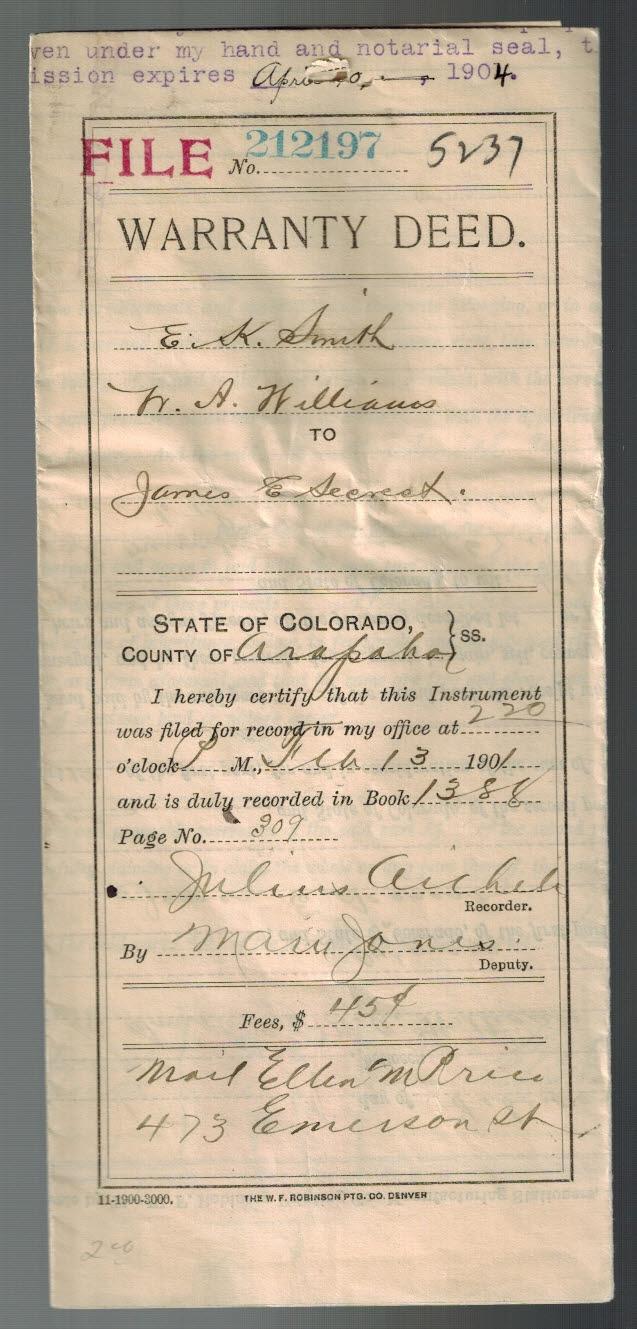 ven under my hand and notarial seal, t
ission expires April 1904.
FILE No. 212197 5237
WARRANTY DEED.
E. K. Smith
W. A. Williams
TO
James E Secrest.
STATE OF COLORADO,
COUNTY OF Arapahoe } SS.
I hereby certify that this Instrument
was filed for record in my office at 220
o'clock P M., Feb 13 1901
and is duly recorded in Book 1388
Page No. 309
Julius Aichele
Recorder.
By Mary Jones.
Deputy.
Fees, $ 45¢
Mail Ellen M Price
473 Emerson St
11-1900-3000. THE W. F. ROBINSON PTG. CO. DENVER